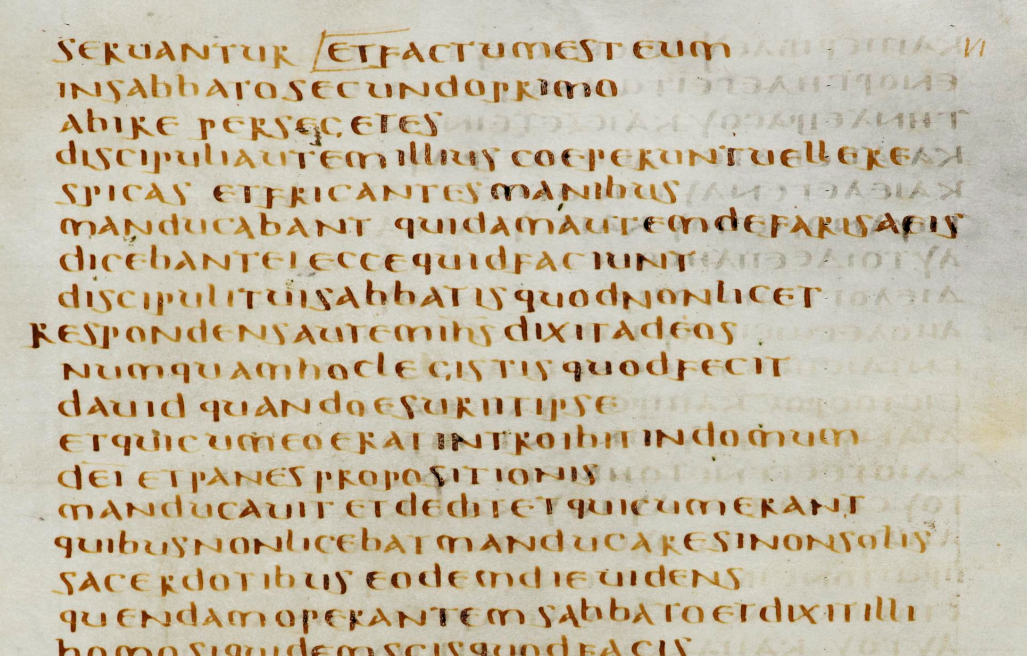 SERUANTUR ETFACTUMESTEUM
INSABBATOSECUNDOPRIMO
ABIRE PERSEGETES
DISCIPULIAUTEMILLIUS COEPERUNTUELLERE
SPICAS ETFRICANTESMANIBUS
MANDUCABANT QUIDAMAUTEMDEFARISAEIS
DICEBANTEIECCEQUIDFACIUNT
DISCIPULITUISABBATISQUODNONLICET
RESPONDENSAUTEMIHSDIXITADEOS
NUMQUAMHOCLEGISTISQUODFECIT
DAUIDQUANDOESURIITIPSE
ETQUICUMEOERATINTROIBITINDOMUM
DEIETPANESPROPOSITIONIS
MANDUCAUITETDEDITETQUICUMERANT
QUIBUSNONLICEBATMANDUCARESINONSOLIS
SACERDOTIBUS EODEMDIEUIDENS
QUENDAMOPERANTEMSABBATOETDIXITILLI
HOMOSIQUIDEMSCISQUODFACIS